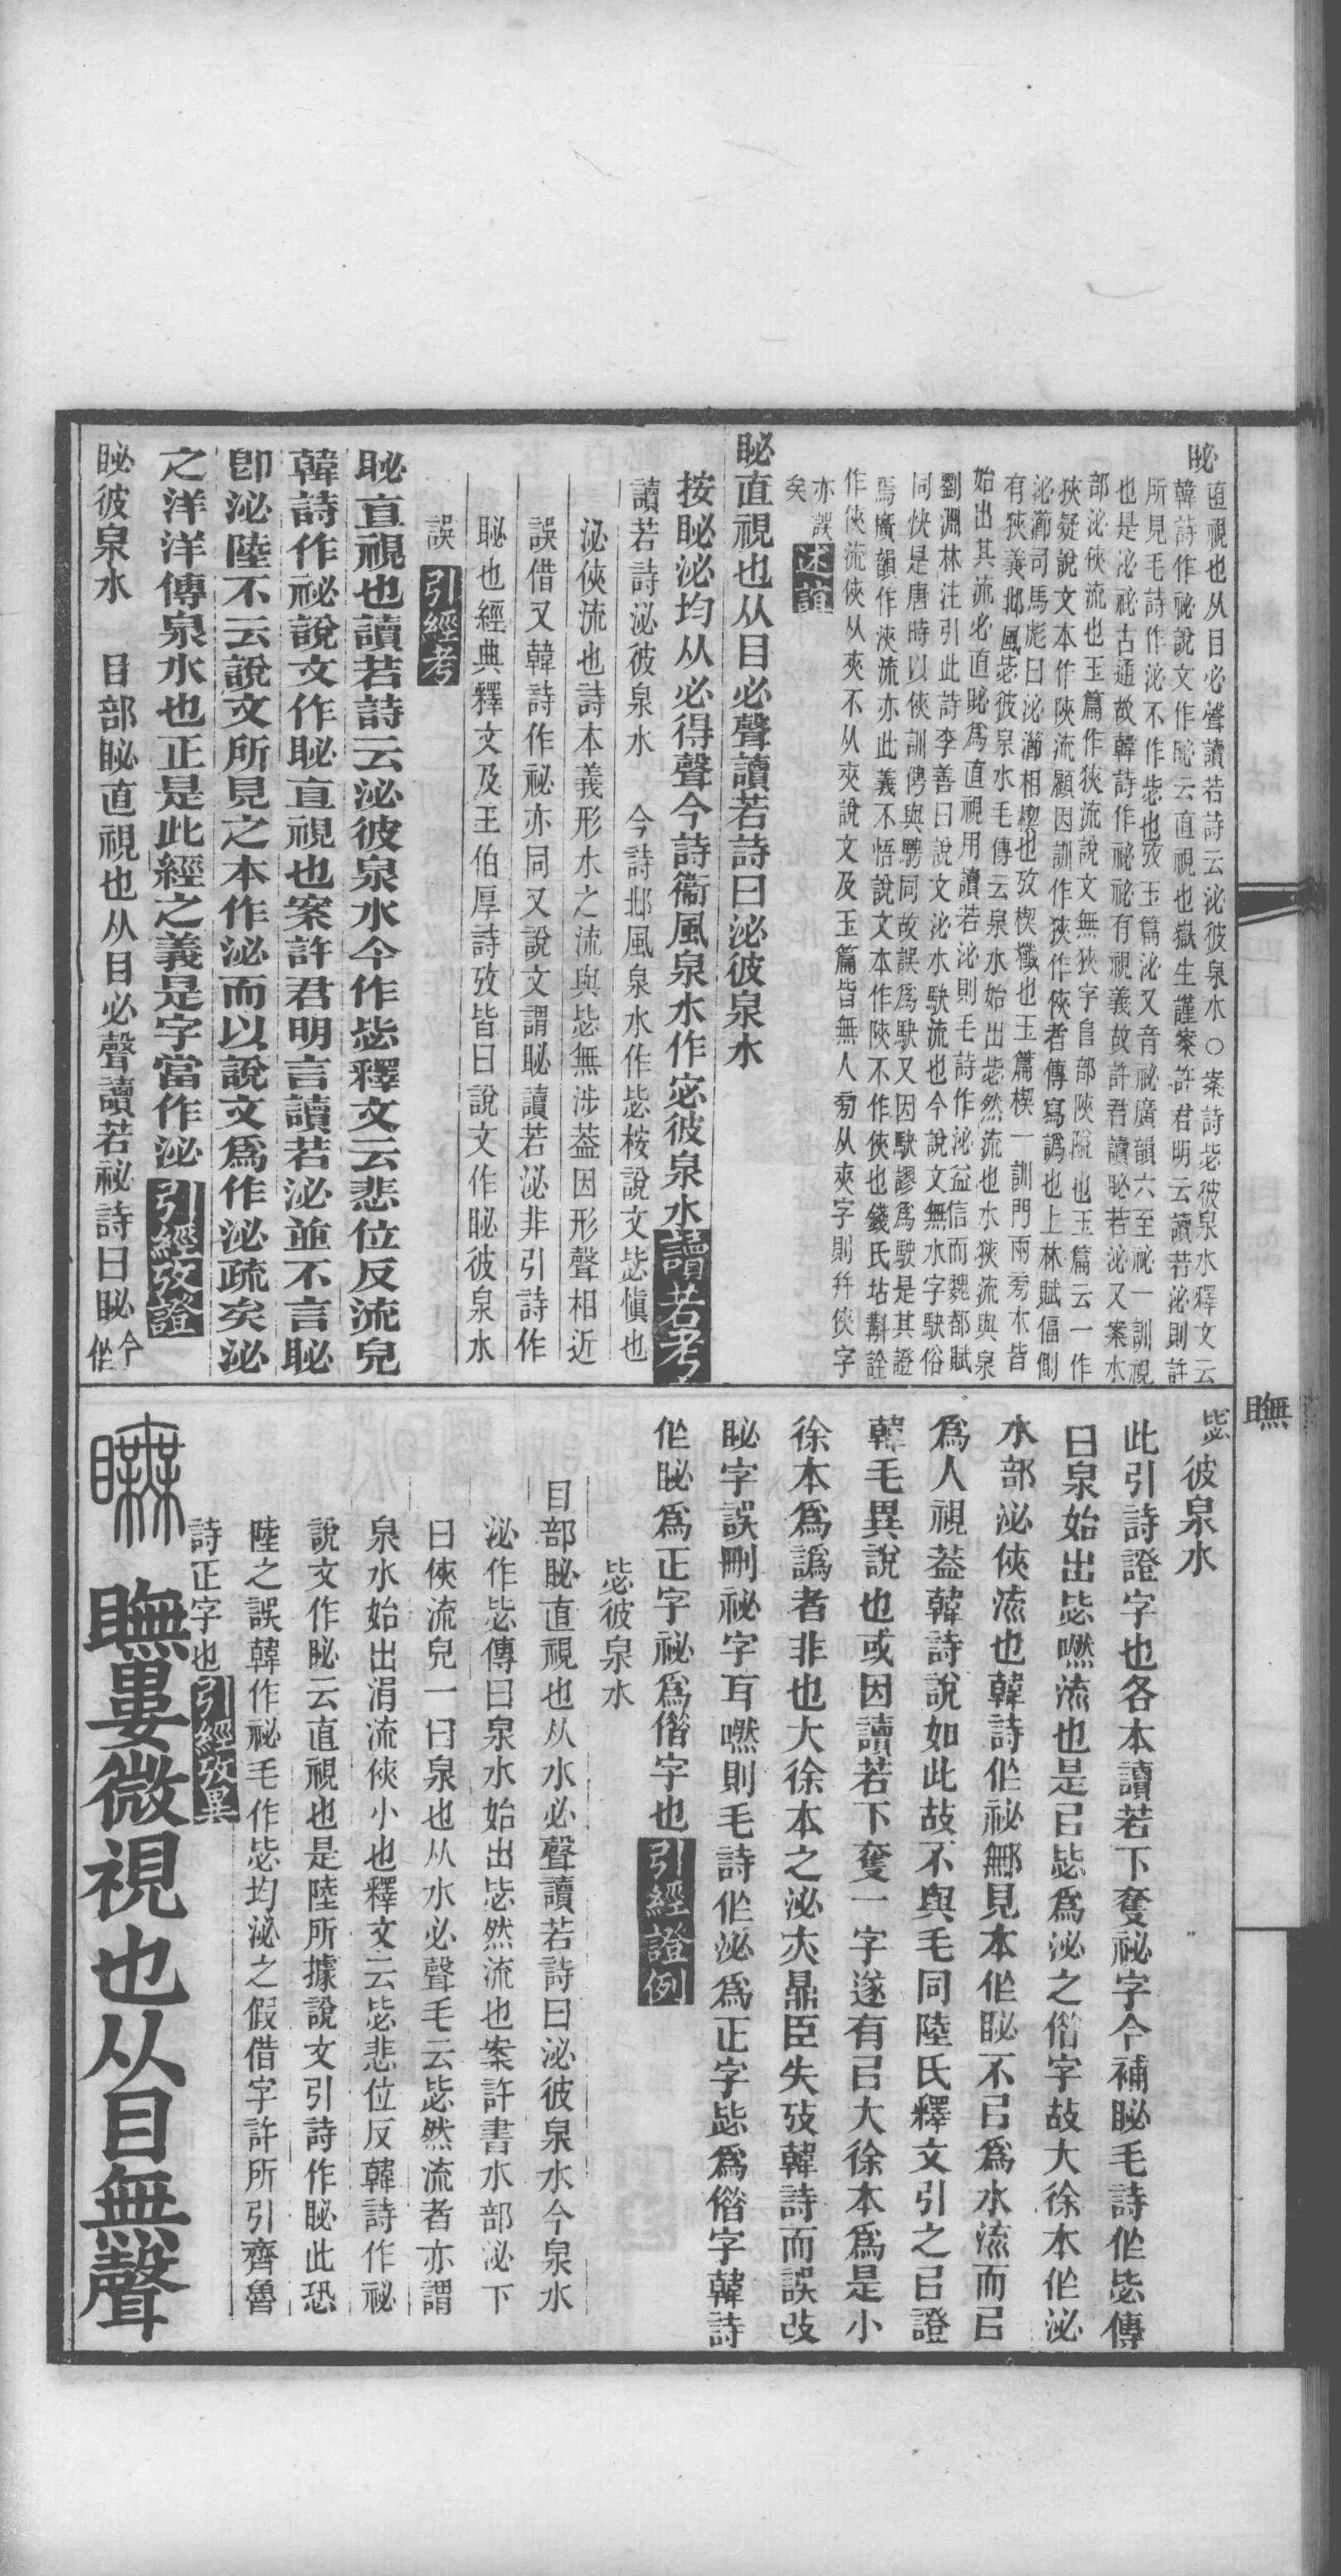 䀣直視也从目必聲讀若詩云泌彼泉水○案詩毖彼泉水釋文云
韓詩作祕說文作䀣云直視也嶽生謹案許君明云讀若泌則許
所見毛詩作泌不作毖也攷玉篇泌又音祕廣韻六至祕一訓視
也是泌祕古通故韓詩作祕祕有視義故許君讀䀣若泌又案水
部泌俠流也玉篇作狹流說文無狹字𨸏部陜隘也玉篇云一作
狹疑說文本作陜流顧因訓作狹作俠者傳寫譌也上林賦偪側
泌瀄司馬彪曰泌瀄相楔也攷楔櫼也玉篇楔一訓門兩旁木皆
有狹義邶風毖彼泉水毛傳云泉水始出毖然流也水狹流與泉
始出其流必直䀣爲直視用讀若泌則毛詩作泌益信而魏都賦
劉淵林注引此詩李善曰說文泌水駃流也今說文無水字駃俗
同快是唐時以俠訓俜與騁同故誤爲駃又因駃謬爲駛是其證
焉廣韻作浹流亦此義不悟說文本作陜不作俠也錢氏坫斠詮
作俠流俠从夾不从㚒說文及玉篇皆無人旁从夾字則幷俠字
亦誤
矣 述誼
䀣直視也从目必聲讀若詩曰泌彼泉水
按䀣泌均从必得聲今詩衞風泉水作毖彼泉水 讀若考
讀若詩泌彼泉水 今詩邶風泉水作毖桉說文毖愼也
泌俠流也詩本義形水之流與毖無涉葢因形聲相近
誤借又韓詩作祕亦同又說文謂䀣讀若泌非引詩作
䀣也經典釋文及王伯厚詩攷皆曰說文作䀣彼泉水
誤 引經考
䀣直視也讀若詩云泌彼泉水今作毖釋文云悲位反流皃
韓詩作祕說文作䀣直視也案許君明言讀若泌並不言䀣
卽泌陸不云說文所見之本作泌而以說文爲作泌疏矣泌
之洋洋傳泉水也正是此經之義是字當作泌 引經攷證
䀣彼泉水 目部䀣直視也从目必聲讀若祕詩曰䀣 今作
毖彼泉水
此引詩證字也各本讀若下奪祕字今補䀣毛詩作毖傳
曰泉始出毖嘫流也是㠯毖爲泌之借字故大徐本作泌
水部泌俠流也韓詩作祕鄦見本作䀣不㠯爲水流而㠯
爲人視葢韓詩說如此故不與毛同陸氏釋文引之㠯證
韓毛異說也或因讀若下奪一字遂有㠯大徐本爲是小
徐本爲譌者非也大徐本之泌夶鼎臣失攷韓詩而誤改
䀣字誤刪祕字耳嘫則毛詩作泌爲正字毖爲借字韓詩
作䀣爲正字祕爲借字也 引經證例
毖彼泉水
目部䀣直視也从水必聲讀若詩曰泌彼泉水今泉水
泌作毖傳曰泉水始出毖然流也案許書水部泌下
曰俠流皃一曰泉也从水必聲毛云毖然流者亦謂
泉水始出涓流俠小也釋文云毖悲位反韓詩作祕
說文作䀣云直視也是陸所據說文引詩作䀣此恐
陸之誤韓作祕毛作毖均泌之假借字許所引齊魯
詩正字也 引經攷異
䁷 䁷婁微視也从目無聲
䁷